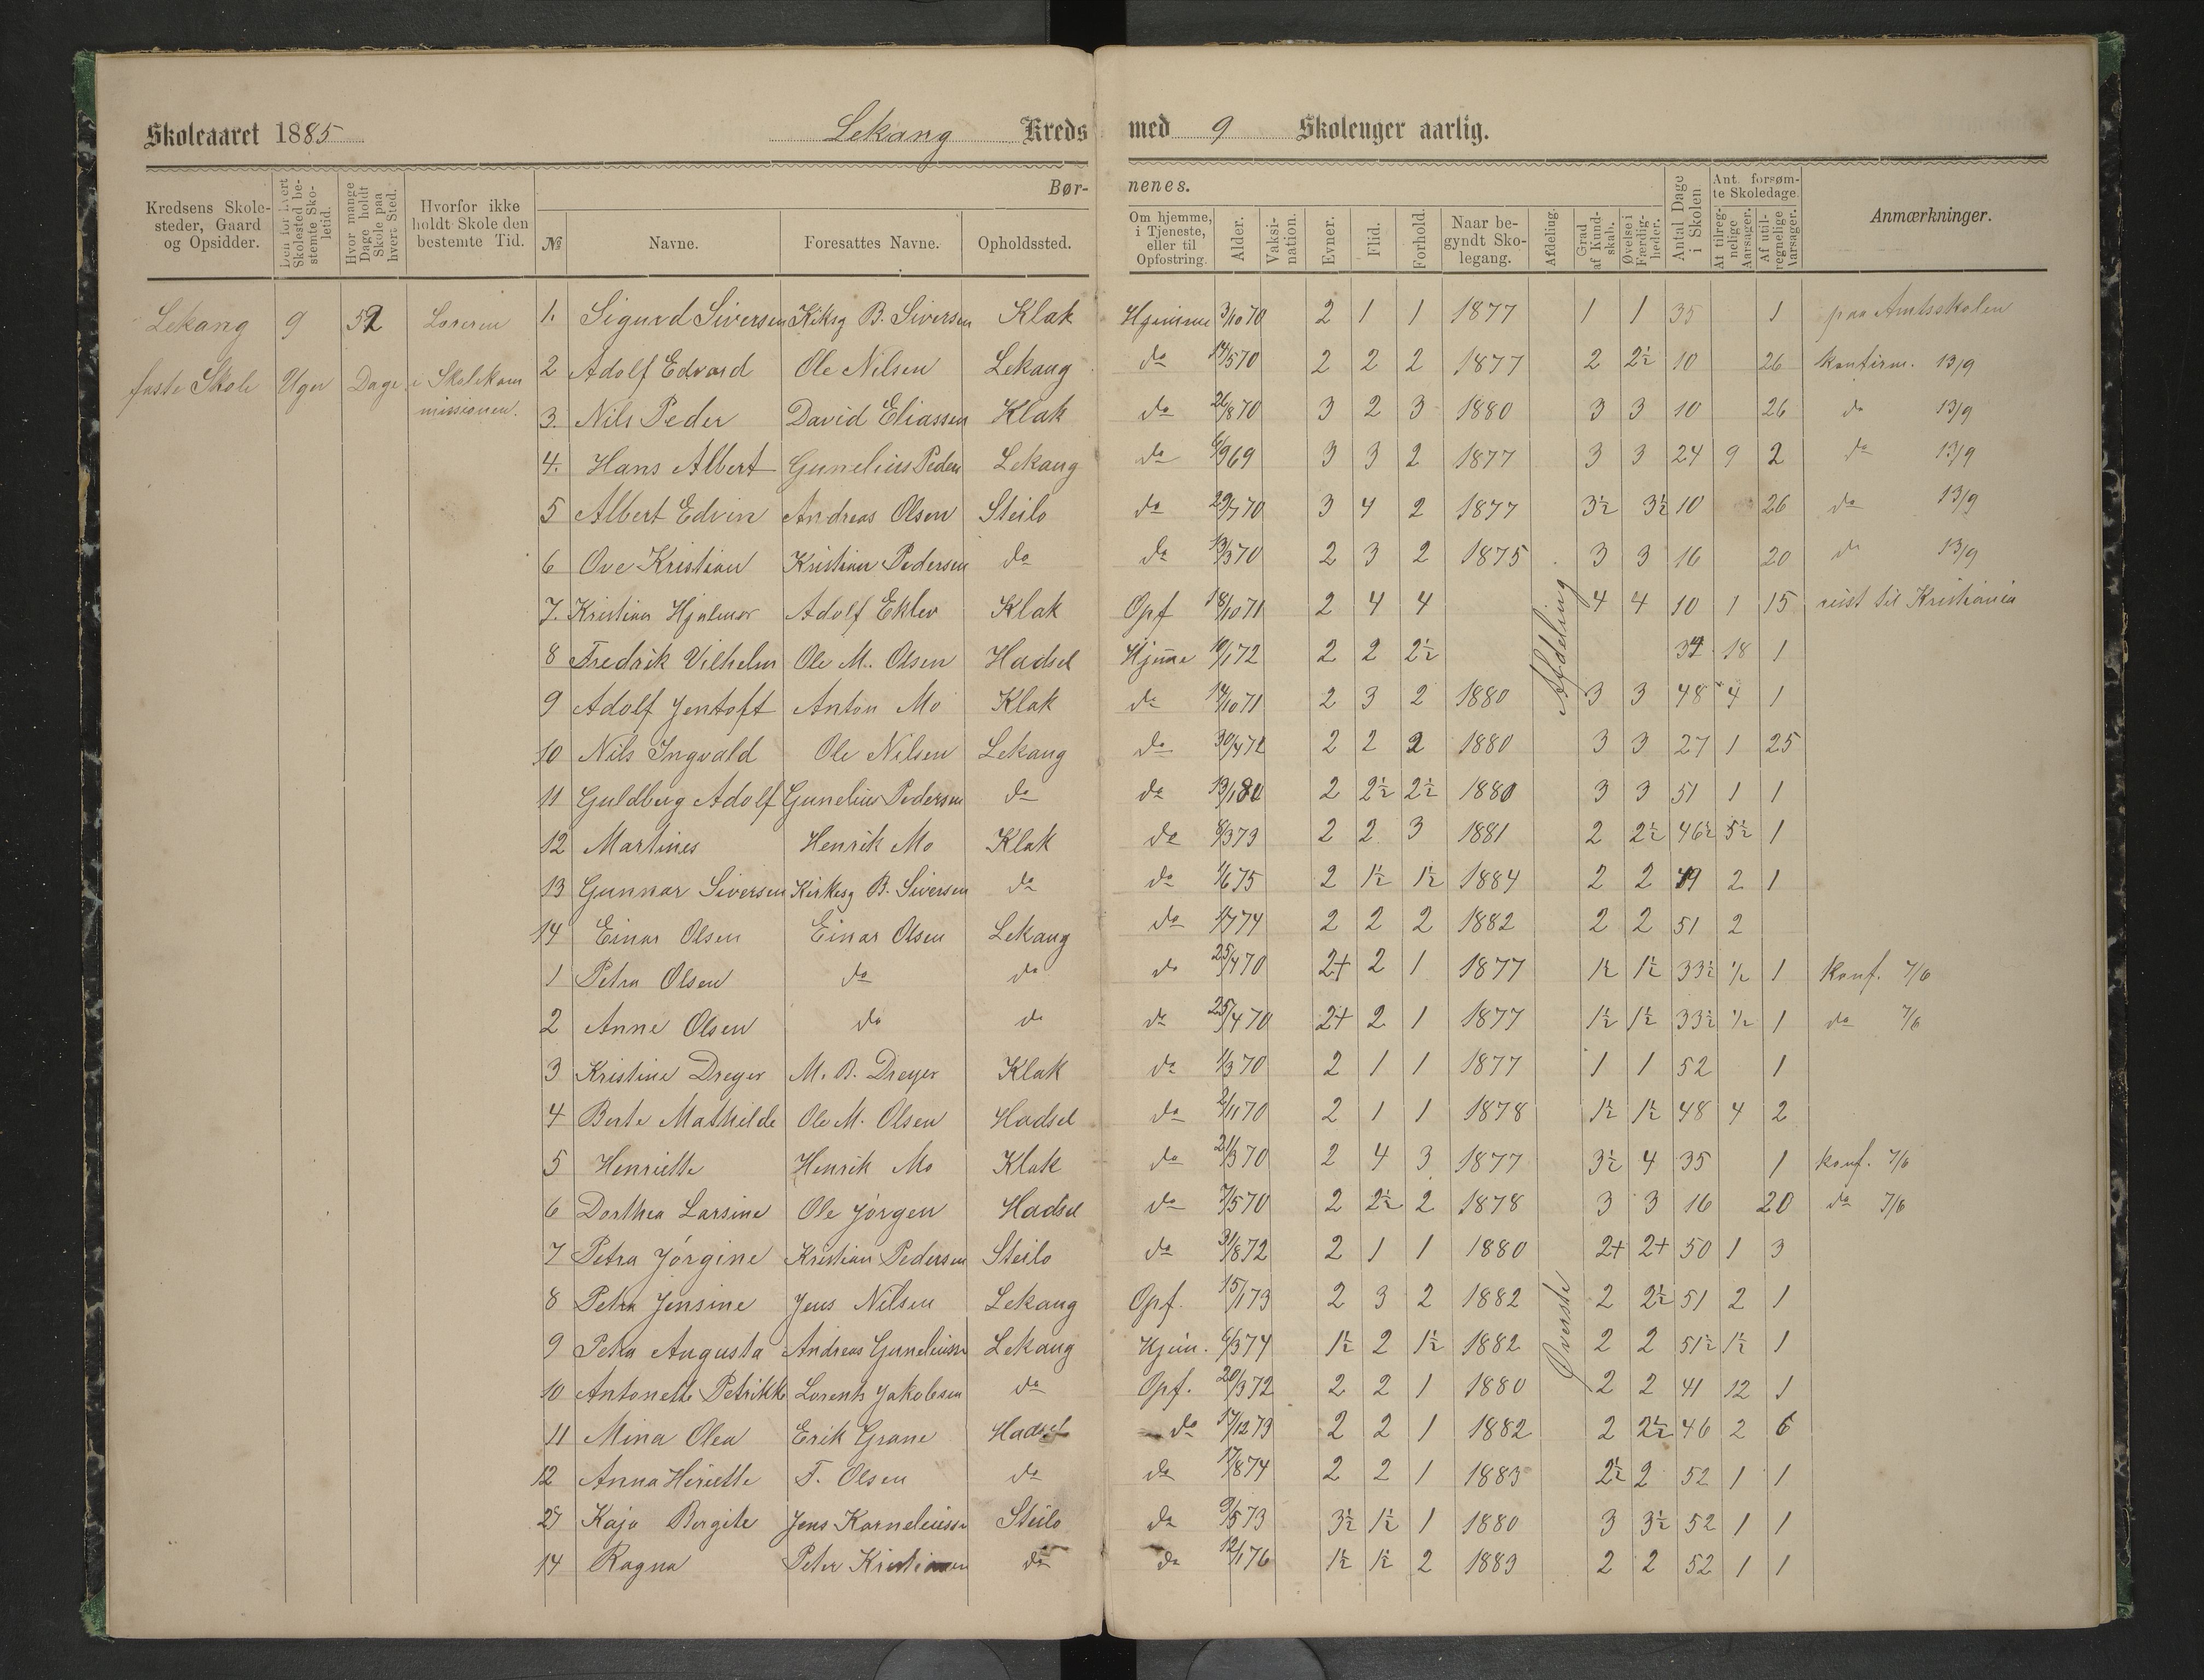 Skoleaaret 1885 Lekang Kreds med 9 Skoleuger aarlig.
Kredsens Skolesteder, Gaard og Opsidder.
Den for hvert Skolested bestemte Skoletid.
Hvor mange Dage holdt Skole paa hvert Sted.
Hvorfor ikke holdt Skole den bestemte Tid.
Børnenes.
№ Navne. Foresattes Navne. Opholdssted.
Om hjemme, i Tjeneste, eller til Opfostring.
Alder. Vaksination. Evner. Flid. Forhold.
Naar begyndt Skolegang.
Afdeling. Grad af Kundskab. Øvelse i Færdigheder.
Antal Dage i Skolen.
Ant. forsømte Skoledage.
At tilregnelige Aarsager. Af utilregnelige Aarsager.
Anmærkninger.
Lekang 9 52
faste Skole Uger Dage
Læreren
i Skolekom
missionen.
1. Sigurd Siversen B. Siversen Klak Hjemme 3/10 70 2 1 1 1877 1 1 35 1 paa Amtsskolen
2 Adolf Edvard Ole Nilsen Lekang do 14/5 70 2 2 2 1877 2 2½ 10 26 konfirm. 13/9
3. Nils Peder David Eliassen Klak do 26/8 70 3 2 3 1880 3 3 10 26 do 13/9
4. Hans Albert Gunelius Peders Lekang do 6/9 69 3 3 2 1877 3 3 24 9 2 do 13/9
5 Albert Edvin Andreas Olsen Steilo do 29/7 70 3 4 2 1877 3½ 3½ 10 26 do 13/9
6 Ove Kristian Kristian Pedersen do do 13/3 70 2 3 2 1875 3 3 16 20 do 13/9
7. Kristian Hjalmar Adolf Eklev Klak Opf 18/10 71 2 4 4 4 4 10 1 15 reist til Kristiania
8 Fredrik Vilhelm Ole M. Olsen Hadsel Hjeme 10/1 72 2 2 2½ 34 18 1
9 Adolf Jentoft Anton Mo Klak do 14/10 71 2 3 2 1880 Afdeling 3 3 48 4 1
10 Nils Ingvald Ole Nilsen Lekang do 30/4 72 2 2 2 1880 3 3 27 1 25
11 Guldberg Adolf Gunelius Pedersen do do 13/1 2 2½ 2½ 1880 3 3 51 1 1
12 Martines Henrik Mo Klak do 8/3 73 2 2 3 1881 2 2½ 46½ 5½ 1
13 Gunnar Siversen Kirkesg B. Siversen do do 1/6 75 2 1½ 1½ 1884 2 2 49 2 1
14 Einar Olsen Einar Olsen Lekang do 1/7 74 2 2 2 1882 2 2 51 2
1 Petra Olsen do do do 25/4 70 2+ 2 1 1877 1½ 1½ 33½ ½ 1 konf. 7/6
2 Anne Olsen do do do 25/4 70 2+ 2 1 1877 1½ 1½ 33½ ½ 1 do 7/6
3 Kristine Dreyer M. B. Dreyer Klak do 1/3 70 2 1 1 1877 1 1 52 1
4 Berte Mathilde Ole M. Olsen Hadsel do 2/11 70 2 1 1 1878 1½ 1½ 48 4 2
5 Henriette Henrik Mo Klak do 21/3 70 2 4 3 1877 3½ 4 35 1 konf. 7/6
6 Dorthea Larsine Ole Jörgen Hadsel do 7/5 70 2 2½ 2 1878 3 3 16 20 do 7/6
7 Petra Jörgine Kristian Pedersen Steilo do 31/8 72 2 1 1 1880 2+ 2+ 50 1 3
8 Petra Jensine Jens Nilsen Lekang Opf. 15/1 73 2 3 2 1882 Øverste 2 2½ 51 2 1
9 Petra Augusta Andreas Guneliussn Lekang Hjem. 6/3 74 1½ 2 1½ 1882 2 2 51½ 1½ 1
10 Antonette Petrikke Lorents Jakobsen do Opf. 20/3 72 2 2 1 1880 2 2 41 12 1
11 Mina Olea Erik Grane Hadsel do 17/12 73 2 2 1 1882 2 2½ 46 2 6
12 Anna Heriette F. Olsen do do 17/8 74 2 2 1 1883 2½ 2 52 1 1
Kaja Bergite Jens Korneliussn Steilo do 9/5 73 3½ 1½ 1 1880 3 3½ 52 1 1
14 Ragna Peter Kristiansen do do 12/1 76 1½ 1½ 2 1883 2 2 52 1 1